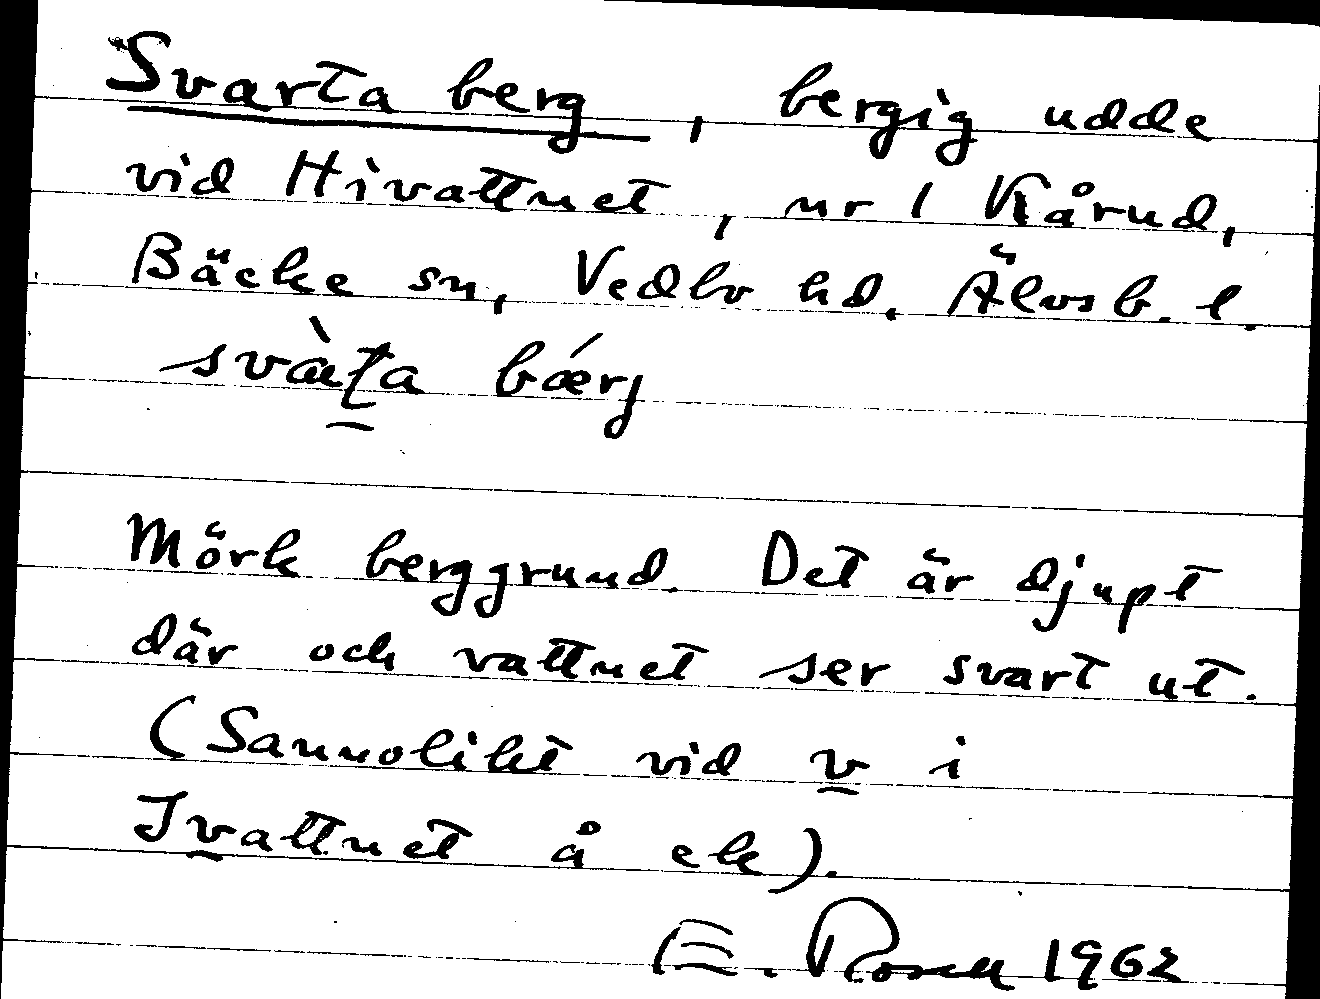 Svarta berg, bergig udde
vid Hivattnet, nr 1 Kårud,
Bäcke sn, Vedbo hd. Älvsb. l.
svæ̀ʈa bǽrj
Mörk berggrund. Det är djupt
där och vattnet ser svart ut.
(Sannolikt vid v i
Ivattnet å ek).
E. Rosell 1962